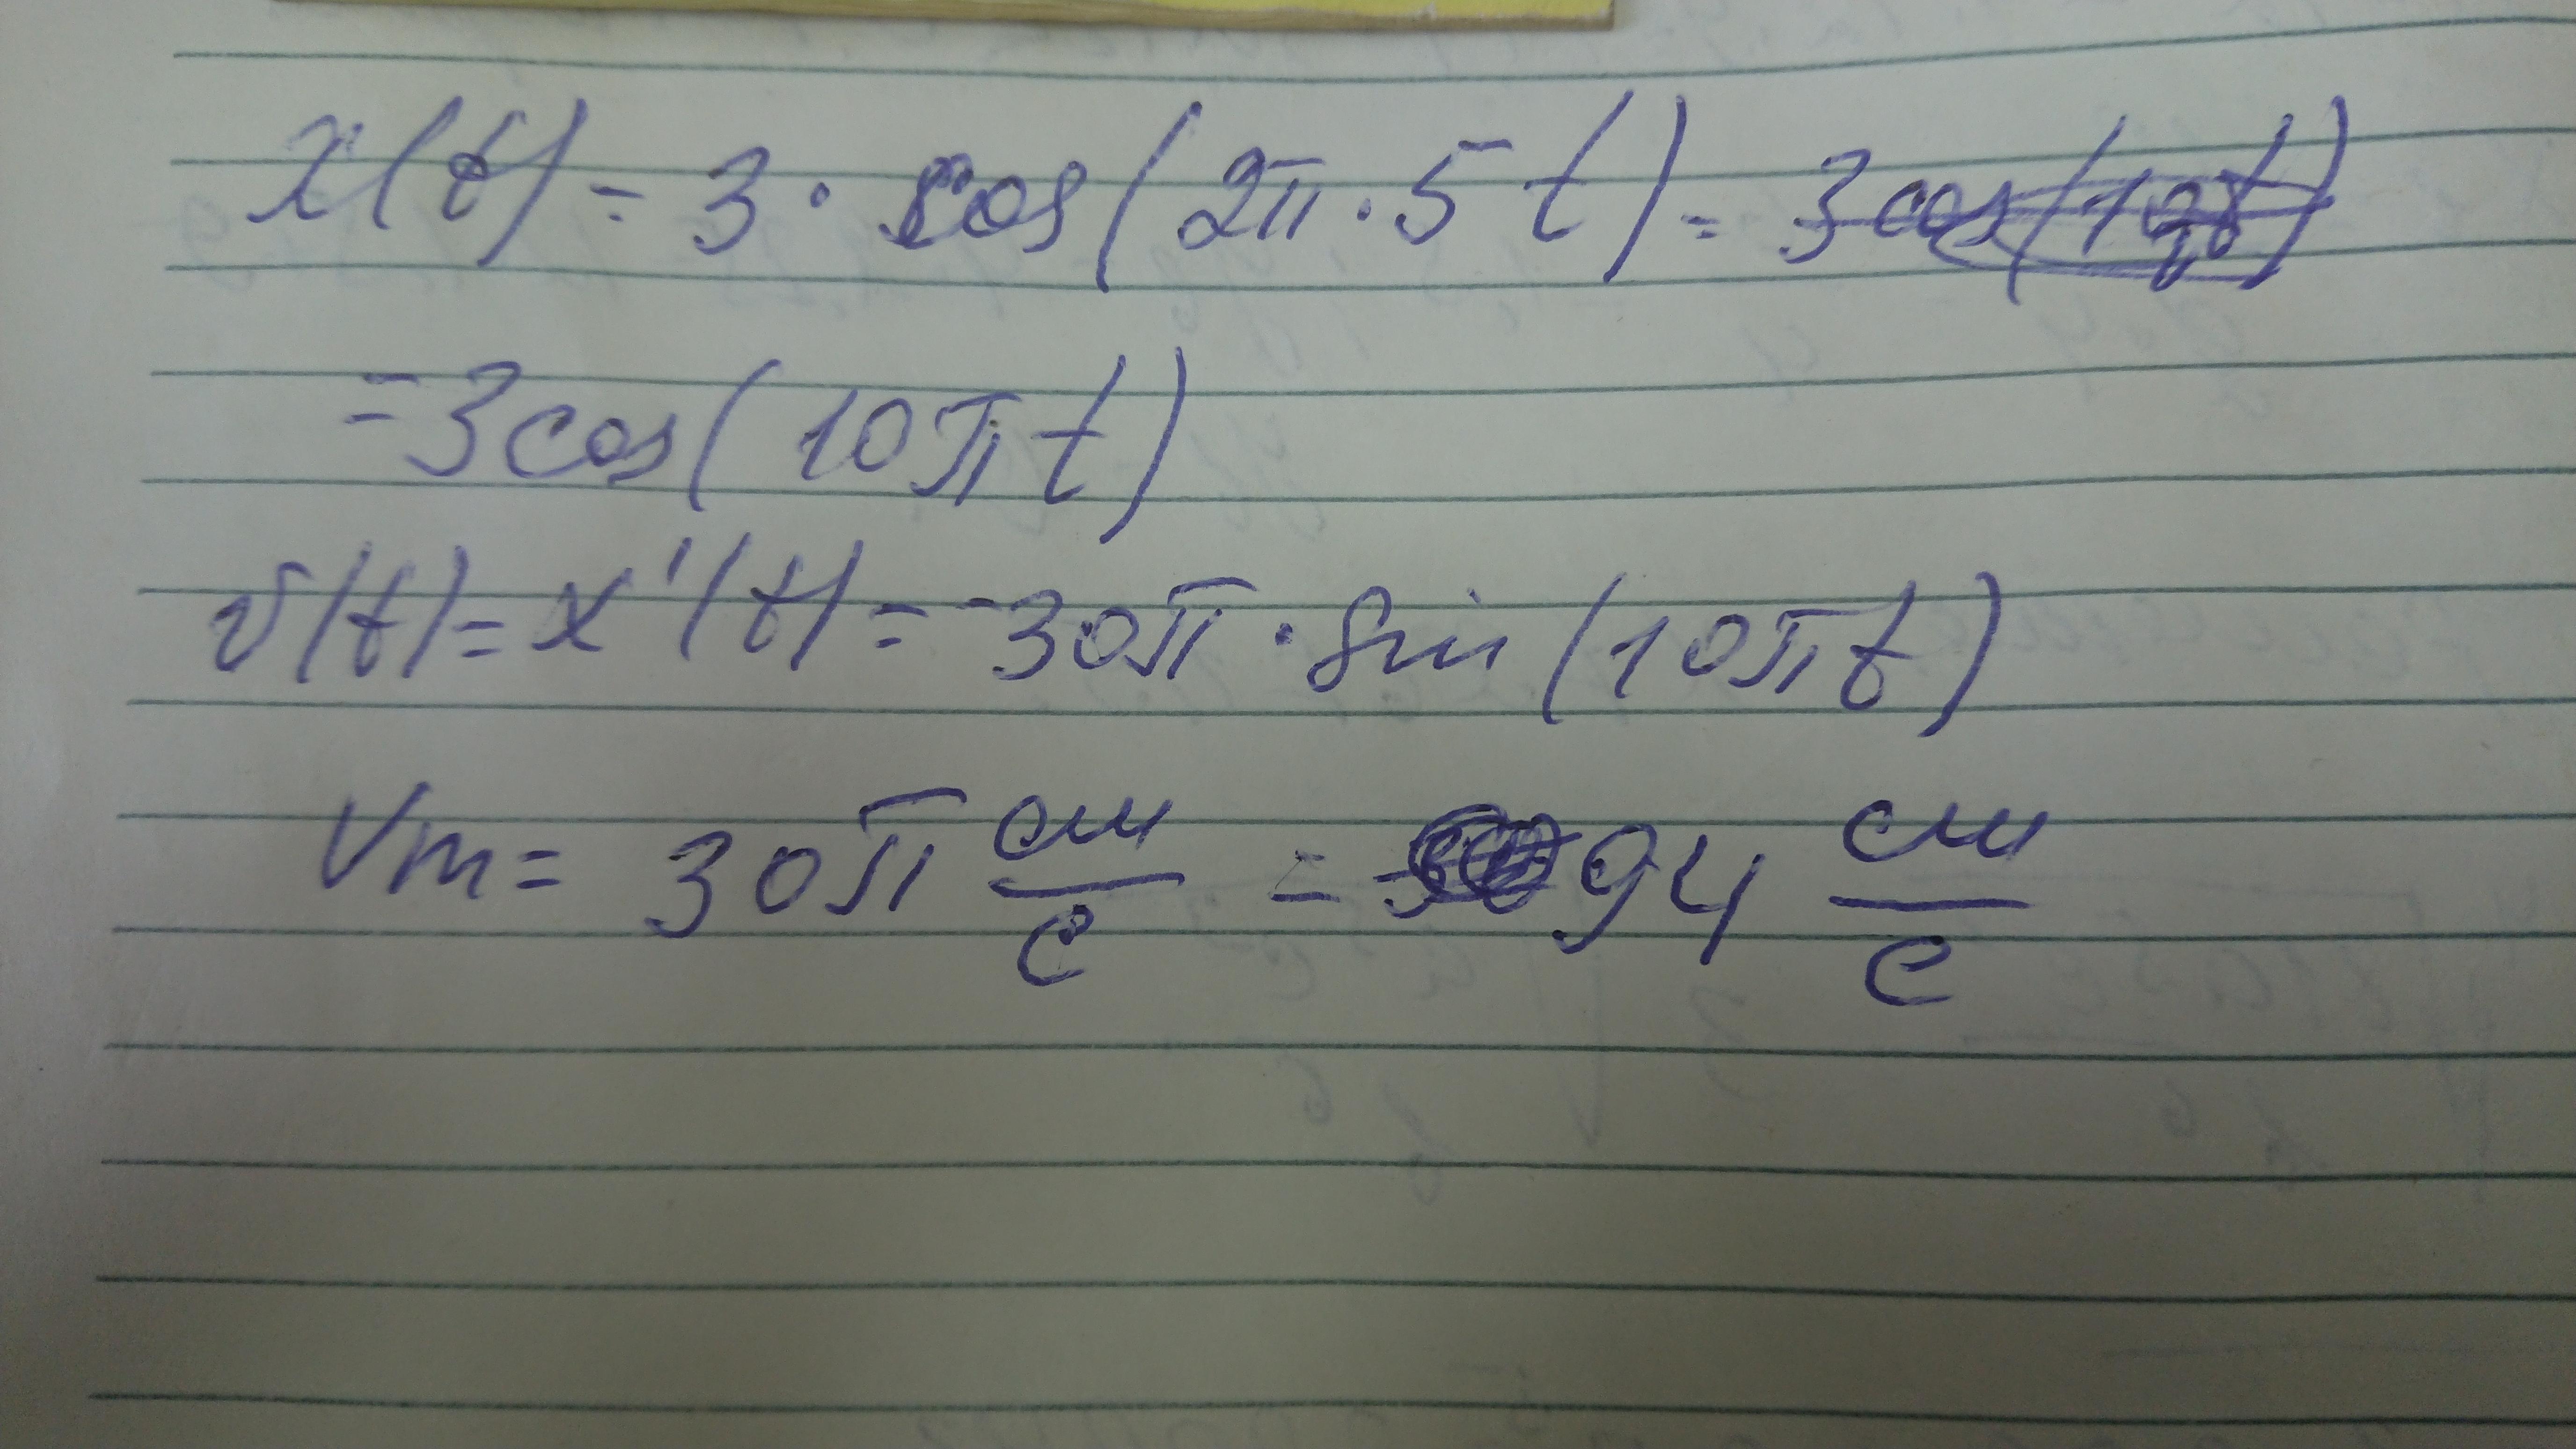 x(t) = 3 · cos(2π · 5t) = 3cos(10πt)
= 3cos(10πt)
v(t) = x'(t) = -30π · sin(10πt)
Vm = 30π см/с = 94 см/с